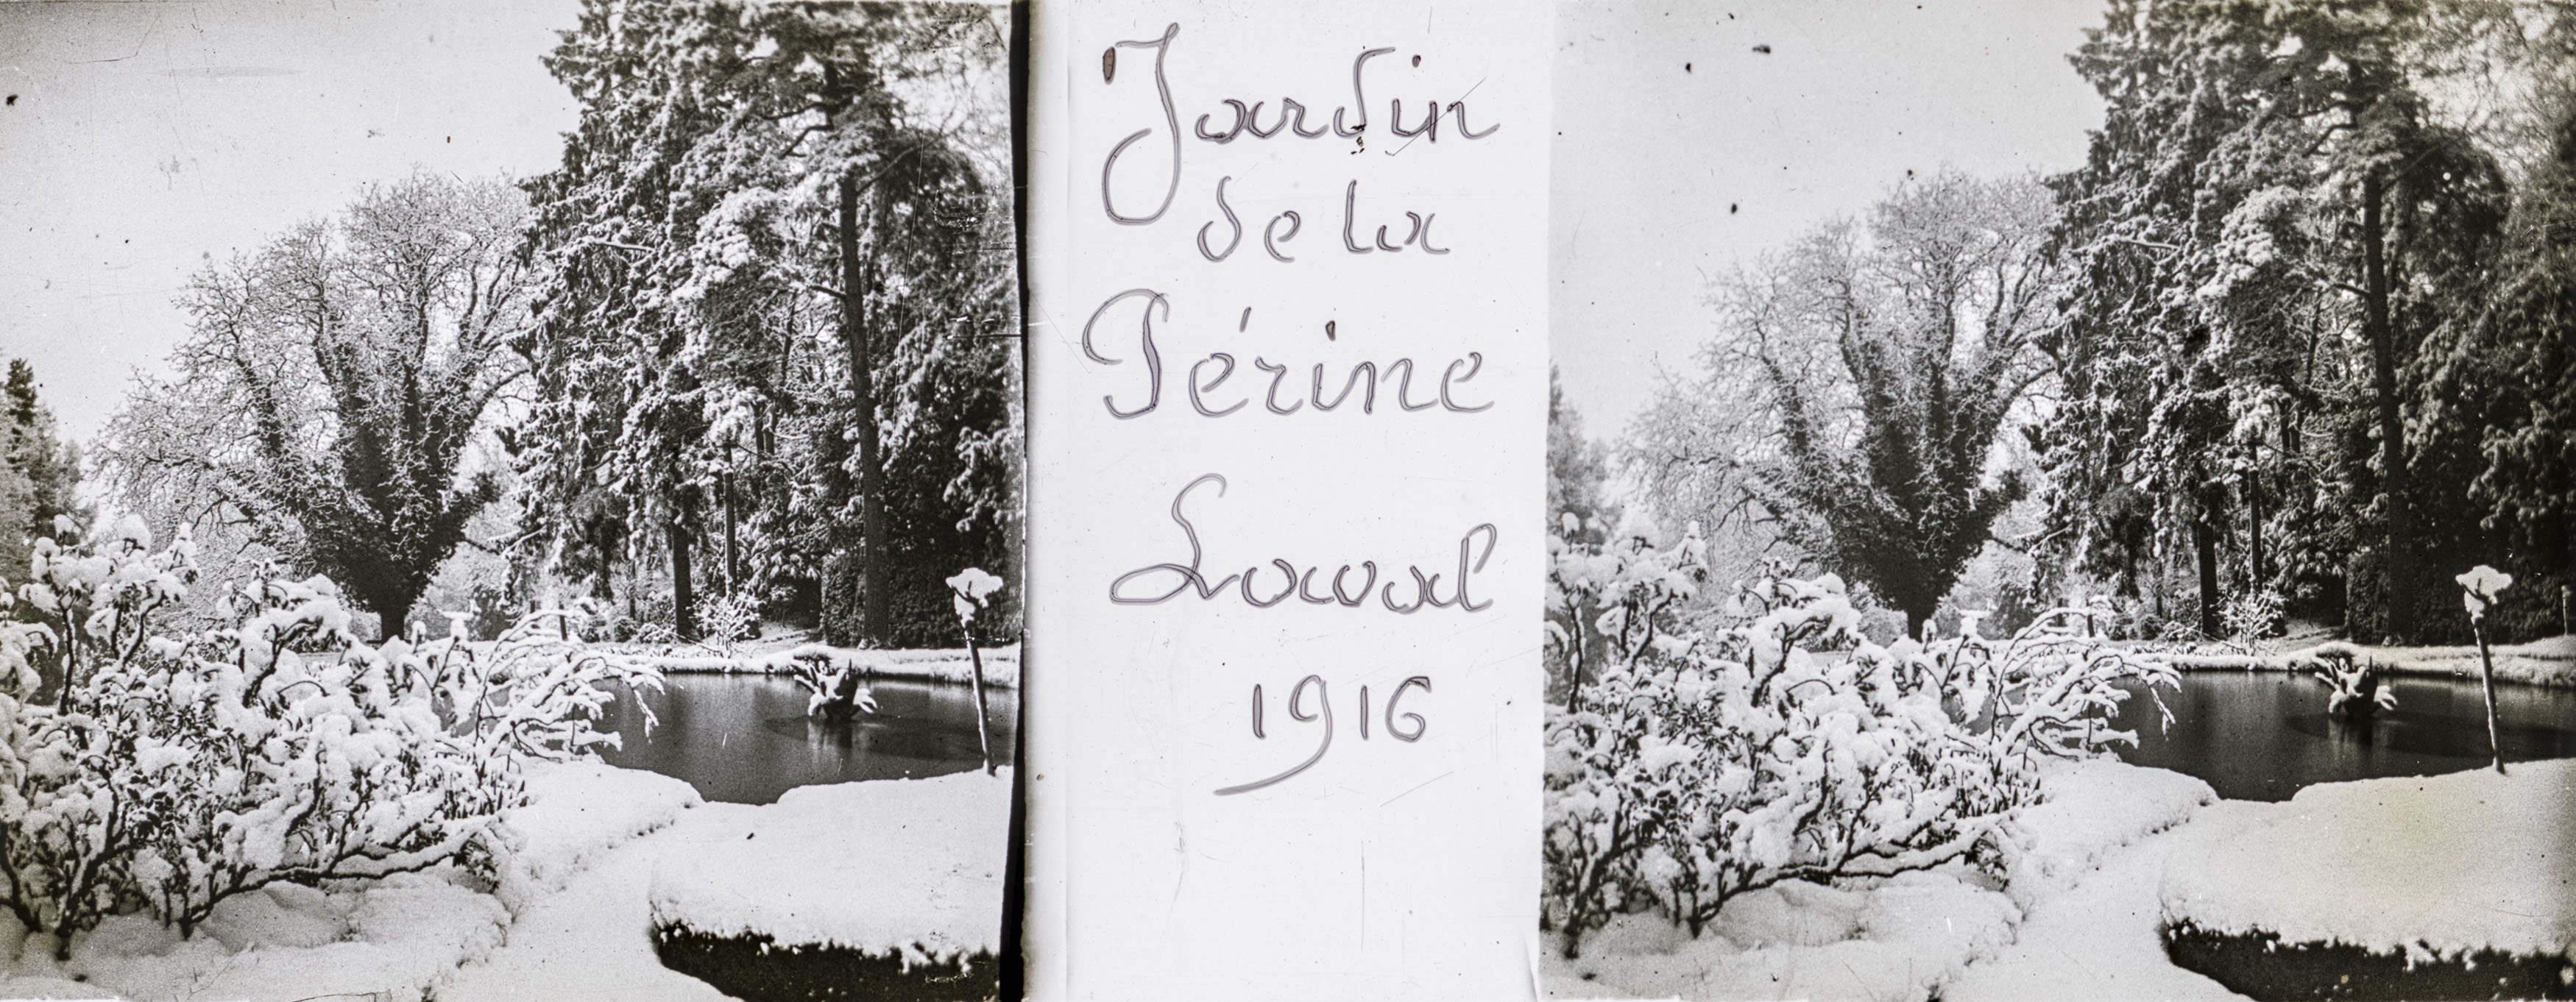 Jardin
de la
Périne
Laval
1916